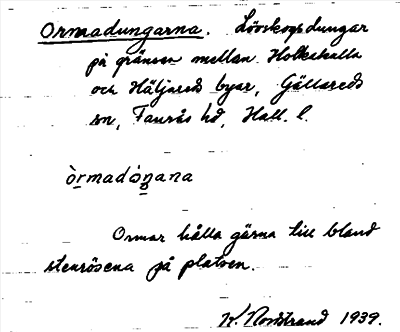 Ormadungarna. Lövskogsdungar
på gränsen mellan Holkakulla
och Häljareds byar, Gällareds
sn, Faurås hd, Hall. l.
òrmadòŋana
Ormar hålla gärna till bland
stenrösena på platsen.
K. Nordstrand 1939.